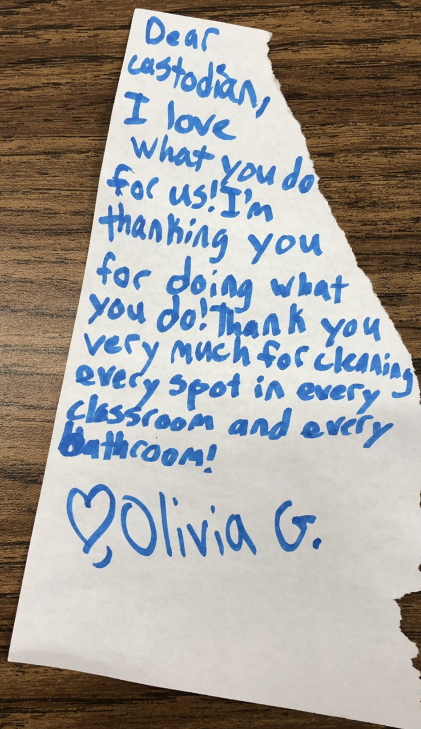 Dear
custodian,
I love
what you do
for us! I'm
thanking you
for doing what
you do! Thank you
very much for cleaning
every spot in every
classroom and every
bathroom!
♡, Olivia G.